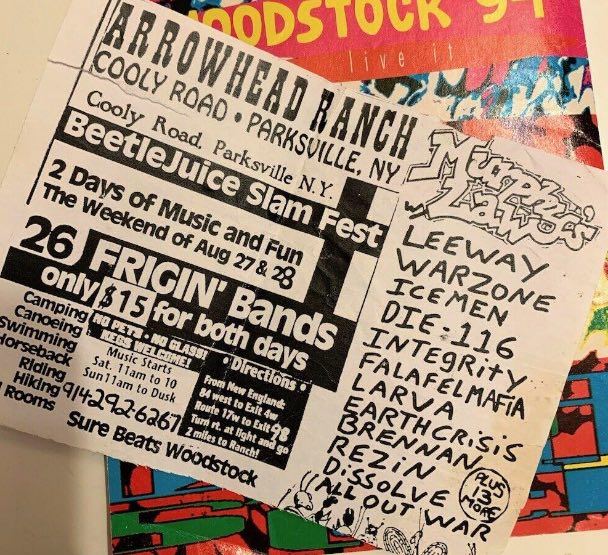 WOODSTOCK '94
live it
ARROWHEAD RANCH
COOLY ROAD • PARKSVILLE, NY
Cooly Road, Parksville N.Y.
BeetleJuice Slam Fest
2 Days of Music and Fun
The Weekend of Aug 27 & 28
26 FRIGIN' Bands
only $15 for both days
Camping
Canoeing
Swimming
Horseback
Riding
Hiking
Rooms
NO PETS • NO GLASS!
KEGS WELCOME!
Music Starts
Sat. 11am to 10
Sun 11am to Dusk
914-292-6267
Sure Beats Woodstock
• Directions •
From New England:
84 west to Exit 4w
Route 17w to Exit 98
Turn rt. at light and go
2 miles to Ranch!
Murphy's
Law
LEEWAY
WARZONE
ICEMEN
DIE-116
INTEGRITY
FALAFEL MAFIA
LARVA
EARTHCRISIS
BRENNAN
REZIN
DISSOLVE
ALL OUT WAR
PLUS
13
MORE